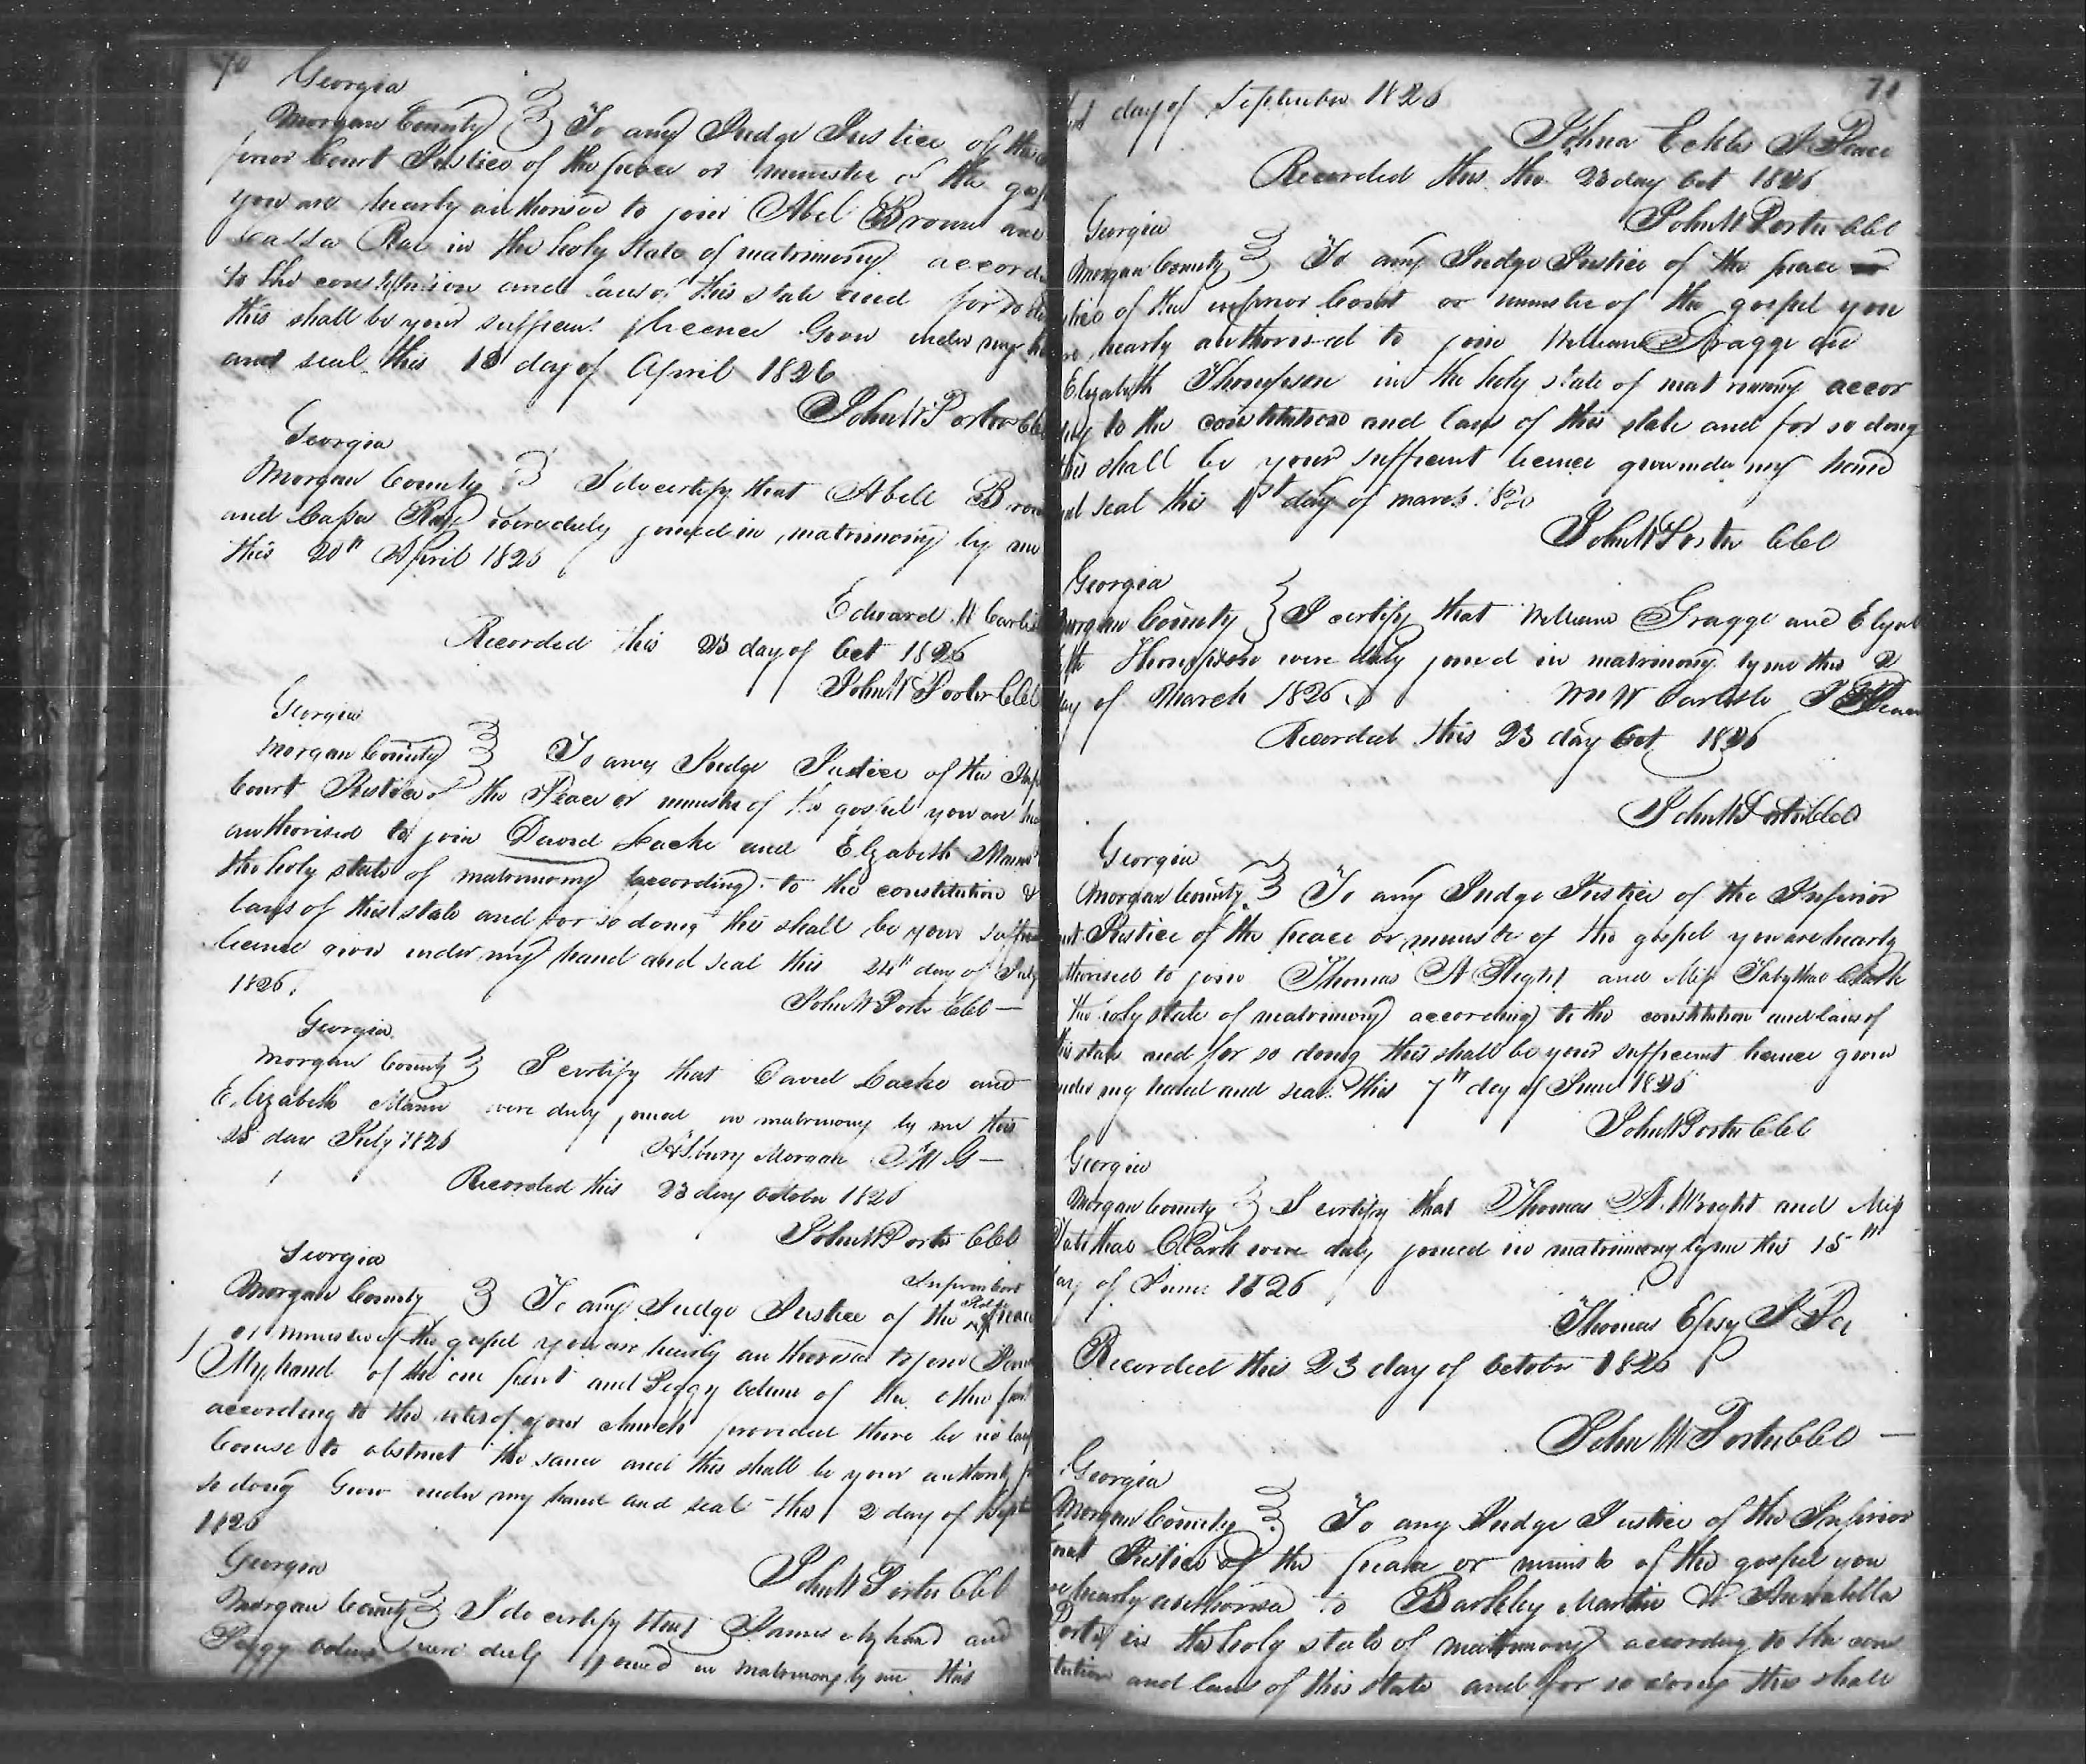 70
Georgia
Morgan County } To any Judge Justice of the
ferior Court Justice of the peace or minister of the gos
you are hearly authorised to join Abel Brown and
Rae in the holy state of matrimony accord
to the constitution and laws of this state and for so do
this shall be your sufficent licence Given under my
and seal this 18 day of April 1826
John W Porter CCO
Georgia
Morgan County } I do certify that Abell Brow
and Cassa Ray were duly joined in matrimony by me
this 20th April 1826
Edward W Carlis
Recorded this 23 day of Oct 1826
John W Porter CCO
Georgia
Morgan County } To any Judge Justice of the Inf
Court Justice of the Peace or minister of the gospel you are he
authorised to join David Lacke and Elizabeth Mann
the holy state of matrimony according to the constitution &
laws of this state and for so doing this shall be your suffi
licence given under my hand and seal this 24th day of July
1826.
John W Porter CCO —
Georgia
Morgan County } I certify that David Lacke and
Elizabeth Mann were duly joined in matrimony by me this
25 day July 1826
Asbury Morgan M G —
Recorded this 23 day October 1826
John W Porter CCO
Georgia
Inferior Cort
Morgan County } To any Judge Justice of the Justice of peace
or minister of the gospel you are hearly authorised to join
Myhand of the one part and Peggy Odum of the other part
according to the rites of your church provided there be no law
Couse to obstruct the same and this shall be your authority f
so doing Given under my hand and seal this 2 day of Sept
1826
John W Porter CCO
Georgia
Morgan County } I do certify that James Myhand and
Peggy Odum were duly joined in matrimony by me this
71
day of September 1826
Echles J Peace
Recorded this the 23 day Oct 1826
John W Porter CCO
Georgia
Morgan County } To any Judge Justice of the peace or
stice of the inferior Court or minister of the gospel you
are hearly authorised to join William Gragge and
Elizabeth Thompson in the holy state of matrimony accor
ding to the constitution and laws of this state and for so doing
this shall be your sufficent licence given under my hand
and seal this 1st day of march 1826
John W Porter CCO
Georgia
Morgan County } I certify that William Gragge and Elizab
eth Thompson were duly joined in matrimony by me this 2
day of March 1826
Wm W Carlisle J Peace
Recorded this 23 day Oct 1826
John W Porter CCO
Georgia
Morgan County } To any Judge Justice of the Inferior
urt Justice of the peace or minister of the gospel you are hearly
thorised to join Thomas A Right and Miss Tabytha Clark
the holy state of matrimony according to the constitution and laws of
this state and for so doing this shall be your sufficent licence given
under my hand and seal this 7th day of June 1826
John W Porter CCO
Georgia
Morgan County } I certify that Thomas A. Wright and Miss
Clark were duly joined in matrimony by me this 15th
day of June 1826
Thomas Espy J P
Recorded this 23 day of October 1826
John W Porter CCO —
Georgia
Morgan County } To any Judge Justice of the Inferior
Court Justice of the peace or minister of the gospel you
are hearly authorised to Barkley Martin &
Porter in the holy state of matrimony according to the con
stitution and laws of this state and for so doing this shall